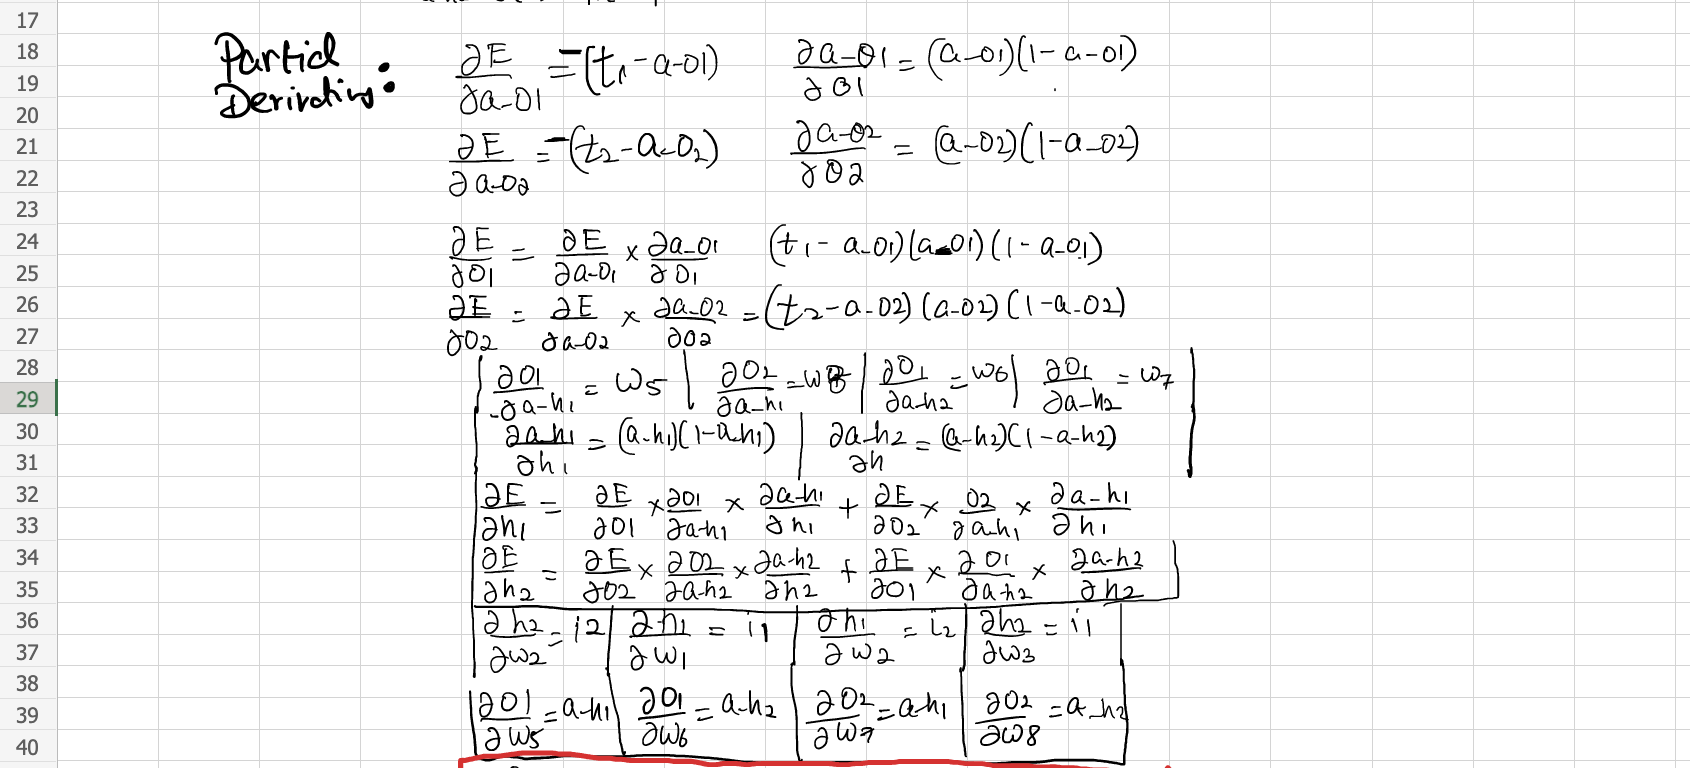 17
18
19
20
21
22
23
24
25
26
27
28
29
30
31
32
33
34
35
36
37
38
39
40
Partial
∂E/∂a-01 = -(t1 - a-01) ∂a-01/∂01 = (a-01)(1 - a-01)
∂E/∂a-02 = -(t2 - a-02) ∂a-02/∂02 = (a-02)(1 - a-02)
∂E/∂01 = ∂E/∂a-01 × ∂a-01/∂01 (t1 - a-01)(a-01)(1 - a-01)
∂E/∂02 = ∂E/∂a-02 × ∂a-02/∂02 = (t2 - a-02)(a-02)(1 - a-02)
∂01/∂a-h1 = w5 | ∂02/∂a-h1 = | ∂01/∂a-h2 = w6 | ∂01/∂a-h2 = w7
∂a-h1/∂h1 = (a-h1)(1 - a-h1) | ∂a-h2/∂h = (a-h2)(1 - a-h2)
∂E/∂h1 = ∂E/∂01 × ∂01/∂a-h1 × ∂a-h1/∂h1 + ∂E/∂02 × 02/∂a-h1 × ∂a-h1/∂h1
∂E/∂h2 = ∂E/∂02 × ∂02/∂a-h2 × ∂a-h2/∂h2 + ∂E/∂01 × ∂01/∂a-h2 × ∂a-h2/∂h2
∂h2/∂w2 = i2 | ∂h1/∂w1 = i1 | ∂h1/∂w2 = i2 | ∂h2/∂w3 = i1
∂01/∂w5 = a-h1 | ∂01/∂w6 = a-h2 | ∂02/∂w7 = a-h1 | ∂02/∂w8 = a-h2